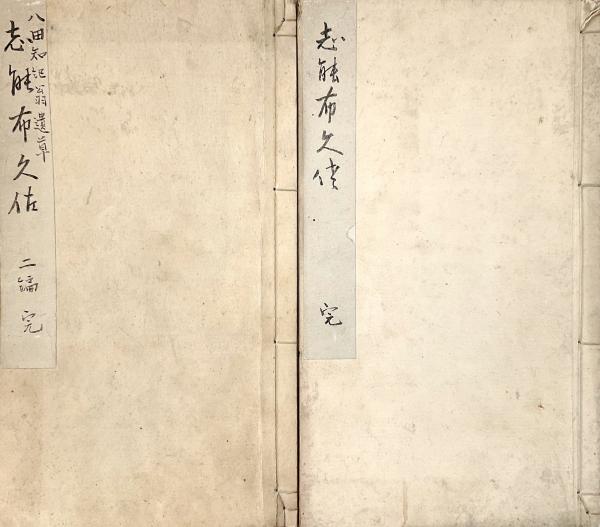 志能布久佐
完
八田知紀翁遺草
志能布久佐
二編
完